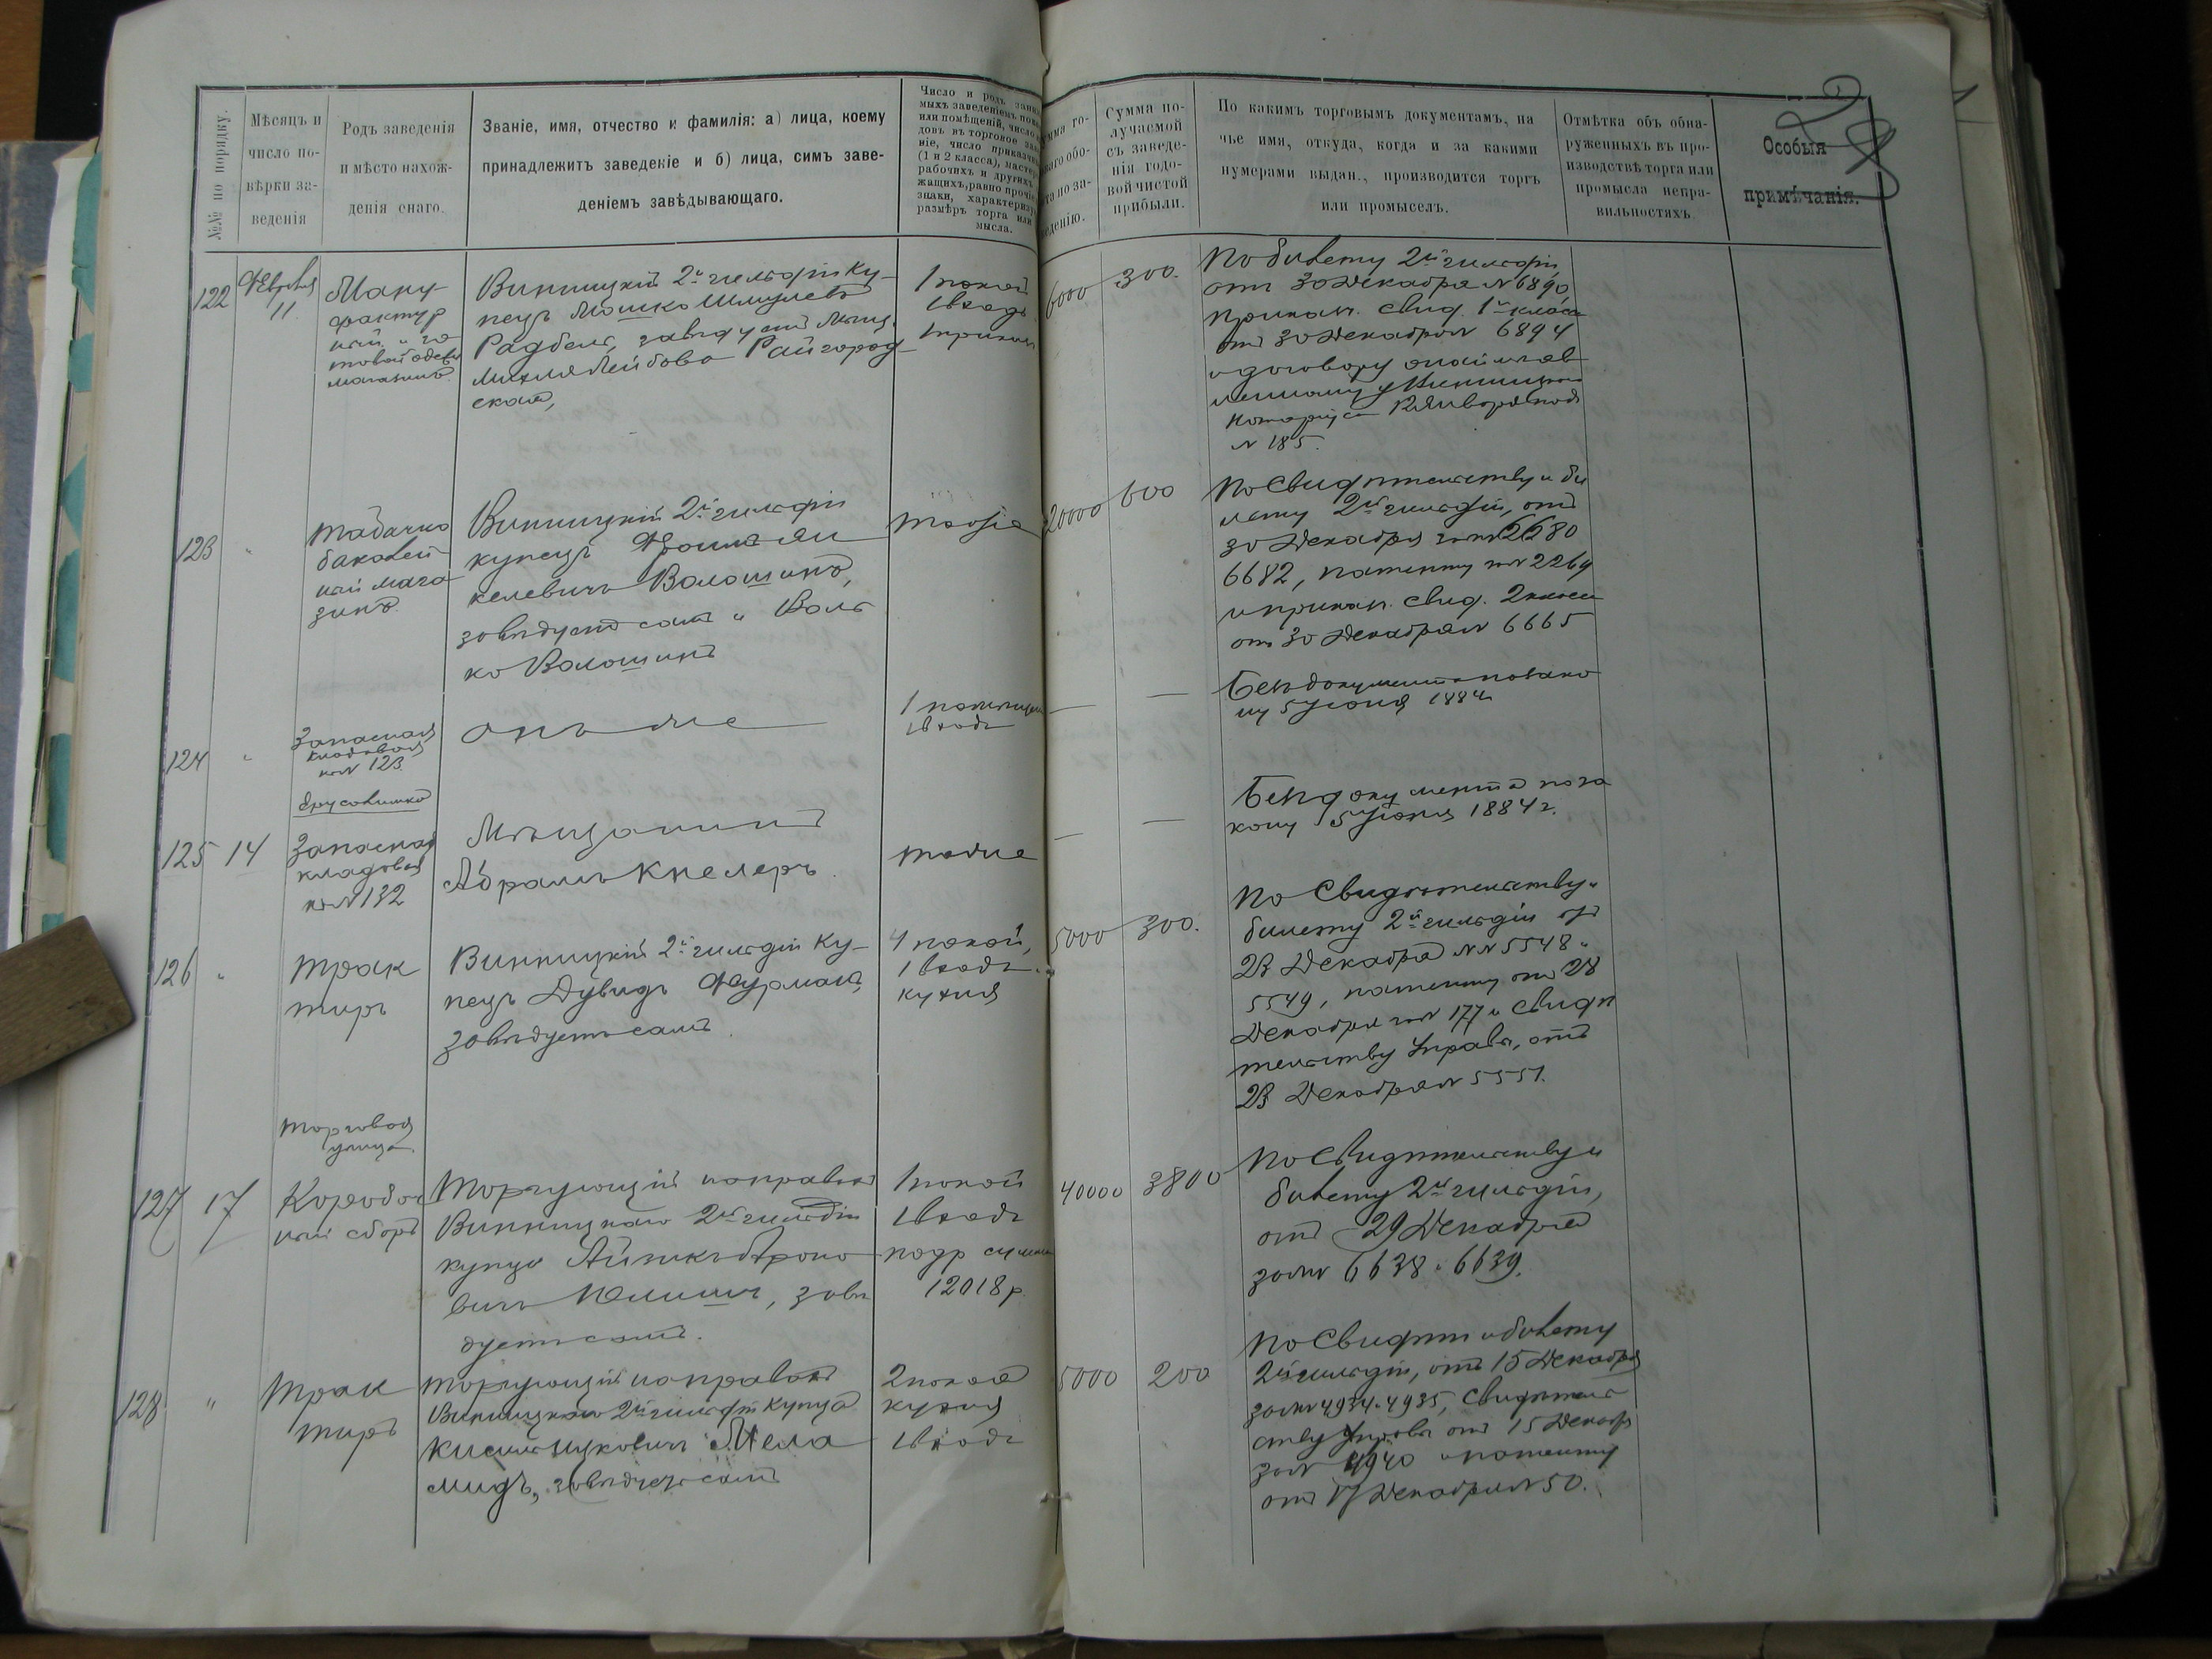 №№ по порядку.
Мѣсяцъ и
число по-
вѣрки за-
веденія
Родъ заведенія
и мѣсто нахож-
денія онаго.
Званіе, имя, отчество и фамилія: а) лица, коему
принадлежитъ заведеніе и б) лица, симъ заве-
деніемъ завѣдывающаго.
Число и родъ
мыхъ заведеніемъ
или помѣщеній, число
довъ въ торговое
ніе, число
(1 и 2 класса),
рабочихъ и другихъ
жащихъ, равно
знаки,
размѣръ торга или
мысла.
Сумма по-
лучаемой
съ заведе-
нія годо-
вой чистой
прибыли.
По какимъ торговымъ документамъ, на
чье имя, откуда, когда и за какими
нумерами выдан., производится торгъ
или промыселъ.
Отмѣтка объ обна-
руженныхъ въ про-
изводствѣ торга или
промысла непра-
вильностяхъ.
Особыя
примѣчанія.
122
Февраля
11
Ману-
фактур
ный и го
товой одежи
магазинъ
Винницкій 2й гильдіи Ку-
пецъ Мошко Шмулевъ
завѣдуетъ Мѣщ.
Лейбова Райгород
ская,
1 покой
1 входъ
1 прикащ
6000
300.
По билету 2й гильдіи,
отъ 30 Декабря № 6890
прикащ. свид. 1го класа
отъ 30 Декабря № 6894
и договору
№ 185.
123
"
Табачно
бакалей
ный мага
зинъ
Винницкій 2й гильдіи
купецъ Фроимъ Ян
келевичъ Волошинъ,
завѣдуетъ самъ и Воль
ко Волошинъ
тоже
20000
600
По Свидѣтельству и би
лету 2й гильдіи, отъ
30 Декабря за №№ 6680
6682, патенту за № 2269
и прикащ. свид. 2 класа
отъ 30 Декабря № 6665
124
"
Запасная
кладовая
къ № 123
онъ же
1 помѣщен
1 входъ
— —
Безъ документа по зако
ну 5 Іюня 1884
Ерусалимка
125
14
Запасная
кладовая
къ № 132
Мѣщанинъ
Абрамъ Кнелеръ
тоже
— —
Безъ документа по за
кону 5 Іюня 1884 г.
126
"
Трак
тиръ
Винницкій 2й гильдіи Ку-
пецъ Дувидъ Фурманъ,
завѣдуетъ самъ.
4 покой,
1 входъ
кухня
5000
300.
По Свидѣтельству и
билету 2й гильдіи отъ
23 Декабря №№ 5548 и
5549, патенту отъ 28
Декабря за № 177 и Свидѣ
тельству Управы, отъ
23 Декабря № 5551.
Торговая
улица
127
17
Коробоч
ный сборъ
Торгующій на правахъ
Винницкаго 2й гильдіи
купца Айзикъ
вичъ, завѣ
дуетъ самъ.
1 покой
1 входъ
подр сумма
12018 р.
40000
3800
По Свидѣтельству и
билету 2й гильдіи,
отъ 29 Декабря
за №№ 6638 и 6639.
128
"
Трак
тиръ
Торгующій на правахъ
Винницкаго 2й гильдіи Купца
Мела
медъ, завѣдуетъ самъ
2 покоя
кухня
1 входъ
5000
200
По Свидѣт и билету
2й гильдіи, отъ 15 Декабря
за №№ 4934 и 4935, Свидѣтель
ству Управы отъ 15 Декабр
за № 4940 и патенту
отъ 17 Декабря № 50.